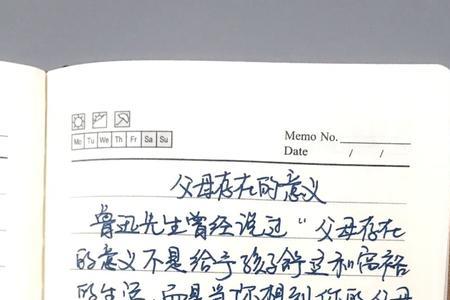 Memo No.
Mo Tu We Th Fr Sa Su
Date / /
父母存在的意义
鲁迅先生曾经说过“父母存在
的意义不是给予孩子舒适和富裕
的生活,而是当你想到你的父母